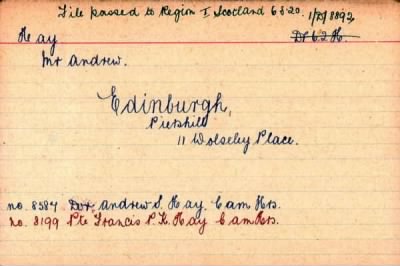 File passed to Region I Scotland 6.3.20. 1/D/8892
Hay
Mr Andrew.
Edinburgh,
Piershill
11 Wolseley Place.
no. 8587 Dvr. Andrew S. Hay. Cam Hrs.
no. 8199 Pte Francis P. K. Hay Cam Hrs.